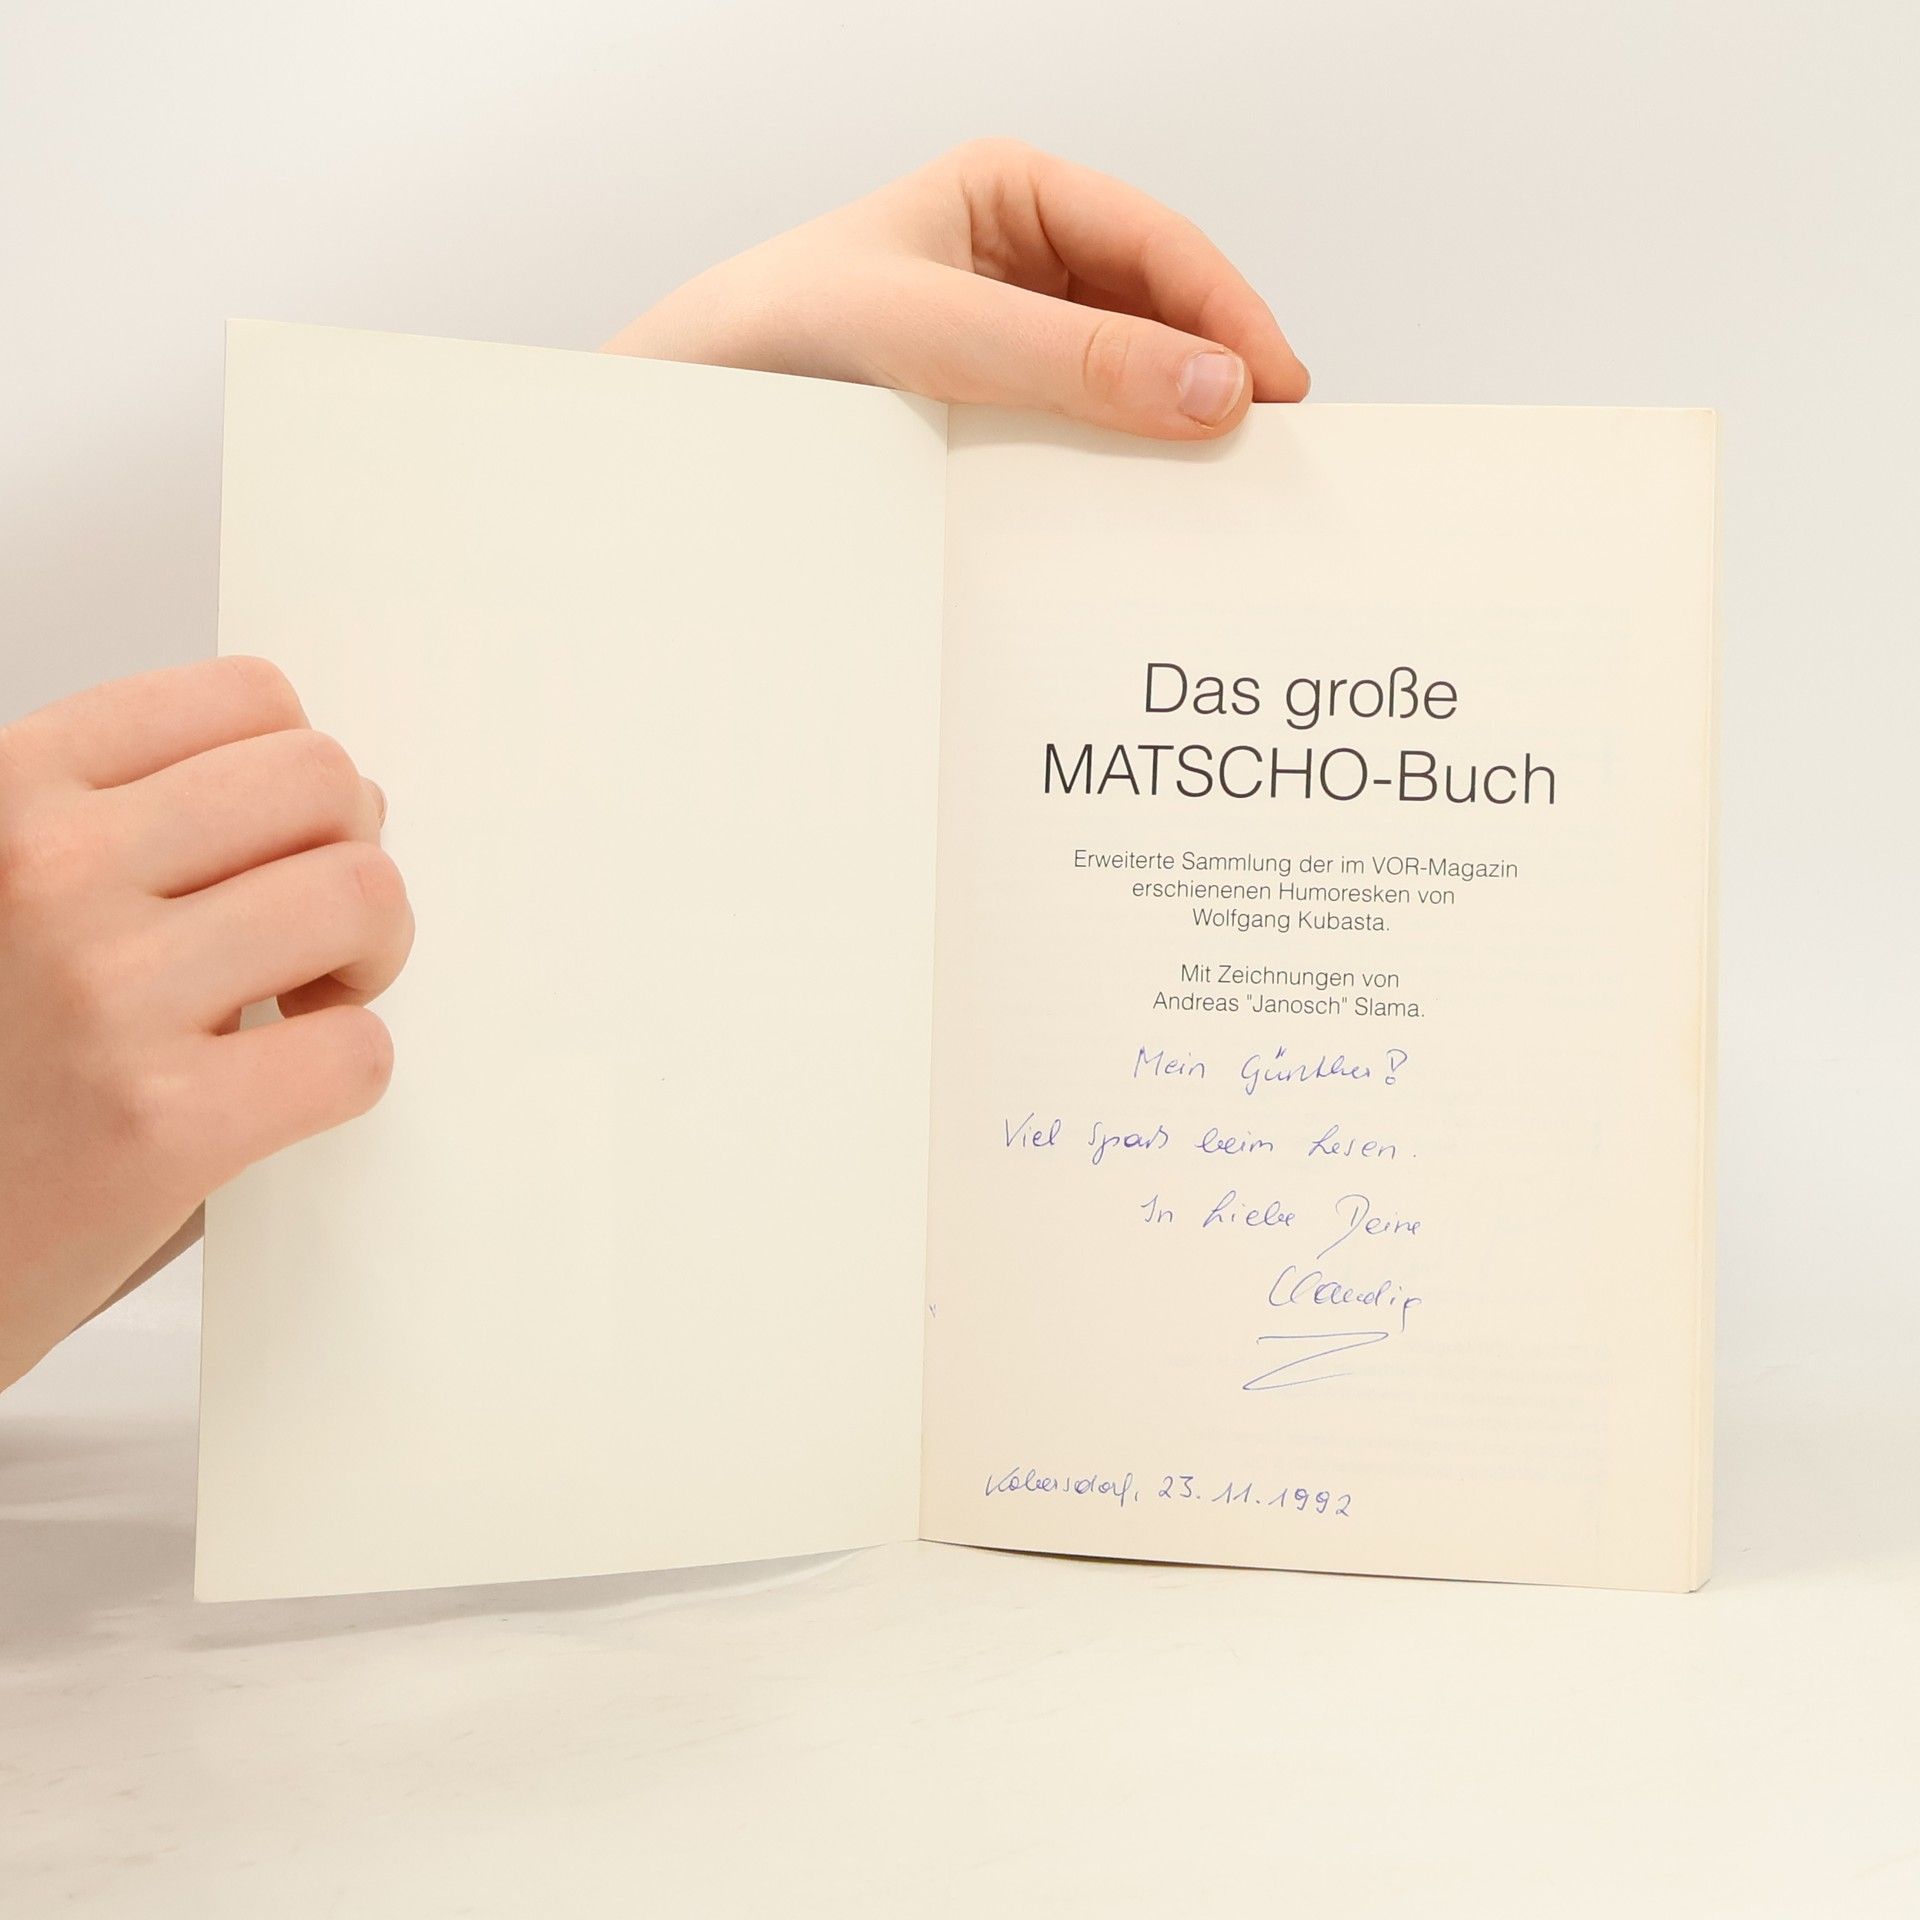 Das große
MATSCHO-Buch
Erweiterte Sammlung der im VOR-Magazin
erschienenen Humoresken von
Wolfgang Kubasta.
Mit Zeichnungen von
Andreas "Janosch" Slama.
Mein Günther!
Viel Spaß beim Lesen.
In Liebe Deine
Claudia
Kobersdorf, 23.11.1992